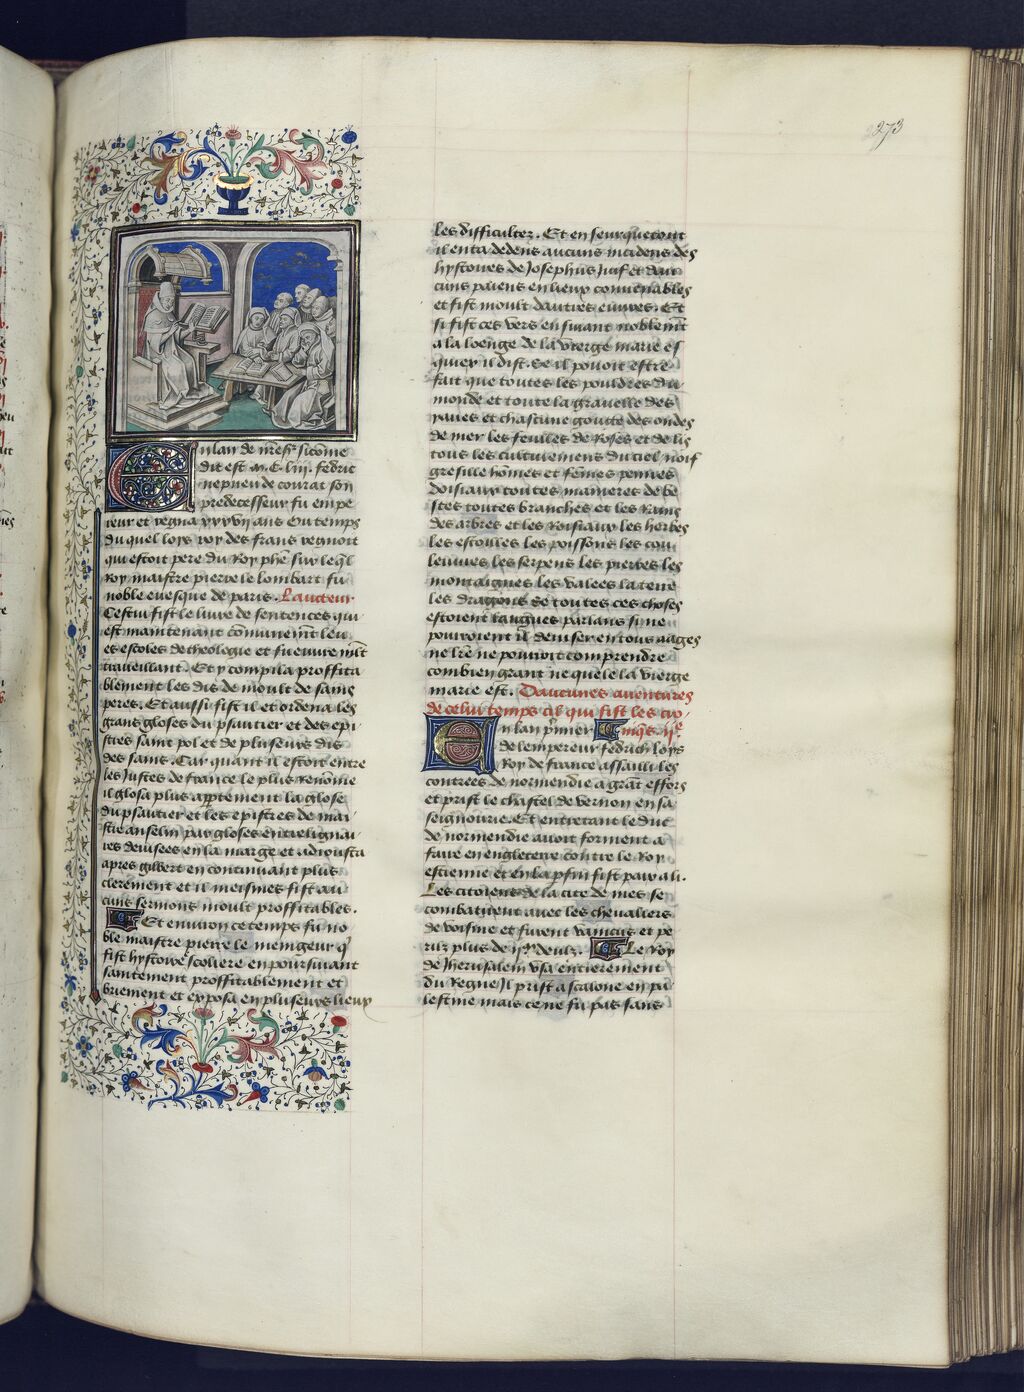 273
En lan de nr̄e sr̄ si com̄e
dit est M. C. liii. fedric
nepueu de conrat son
predecesseur fu empe
reur et regna xxxvii ans Ou temps
du quel loys roy des frans regnoit
qui estoit pere du Roy phē sur leql̄
Roy maistre pierre le lombart fu
noble euesque de paris. Lauteur
Cestui fist le liure de sentences qui
est maintenant cōmunemēt leu
es escoles de theologie et fu euure mlt̄
traueillant. Et y compila proffita
blement les dis de moult de sains
peres. Et aussi fist il et ordena les
grans gloses du psaultier et des epi
stres saint pol et de pluseurs dis
des sains. Car quant il estoit entre
les Justes de france le plus renōme
il glosa plus appertement la glose
du psaultier et les epistres de mai
stre anselin par gloses entrelignai
res deuisees en la marge et adiousta
apres gilbert en continuant plus
clerement et il meismes fist au
cuns sermons moult proffitables.
Et enuiron ce temps fu no
ble maistre pierre le mengeur q̄
fist hystoire scoliere en poursuiuant
saintement proffitablement et
briement et exposa en pluseurs lieux
les difficultez. Et en seurquetout
il enta dedens aucuns incidens des
hystoires de Josephus Juif et dau
cuns paiens en lieux conuenables
et fist moult dautres euures. Et
si fist ces vers ensiuant noblemēt
a la loenge de la vierge marie es
quiex il dist. Se il pouoit estre
fait que toutes les pouldres du
monde et toute la grauelle des
yaues et chascune goute des ondes
de mer les feuilles de Roses et de lis
tous les cultiuemens du ciel noif
gresille hōmes et fēmes pennes
doisiaux toutes manieres de be
stes toutes branches et les Rains
des arbres et les Roisiaux les herbes
les estoilles les poissons les cou
leuures les serpens les pierres les
montaignes les valees la terre
les dragons se toutes ces choses
estoient langues parlans si ne
pourroient il deuiser en tous aages
ne len ne pourroit comprendre
combien grant ne quele la vierge
marie est. Daucunes auentures
de celui temps cil qui fist les cro-
En lan pr̄mier niq̄s. ii.
de lempereur fedrich loys
Roy de france assailli les
contrees de normendie a grāt effors
et prist le chastel de vernon en sa
seignourie. Et entretant le duc
de normendie auoit forment a
faire en engleterre contre le Roy
estienne et en la parfin fist paix a li.
Les citoiens de la cite de mes se
combatirent auec les cheualiers
de voisine et furent vaincus et pe
rilz plus de ii.M deulz. Le Roy
de Jherusalem vsa entierement
du Regne Il prist ascalone en pa
lestine mais ce ne fu pas sans